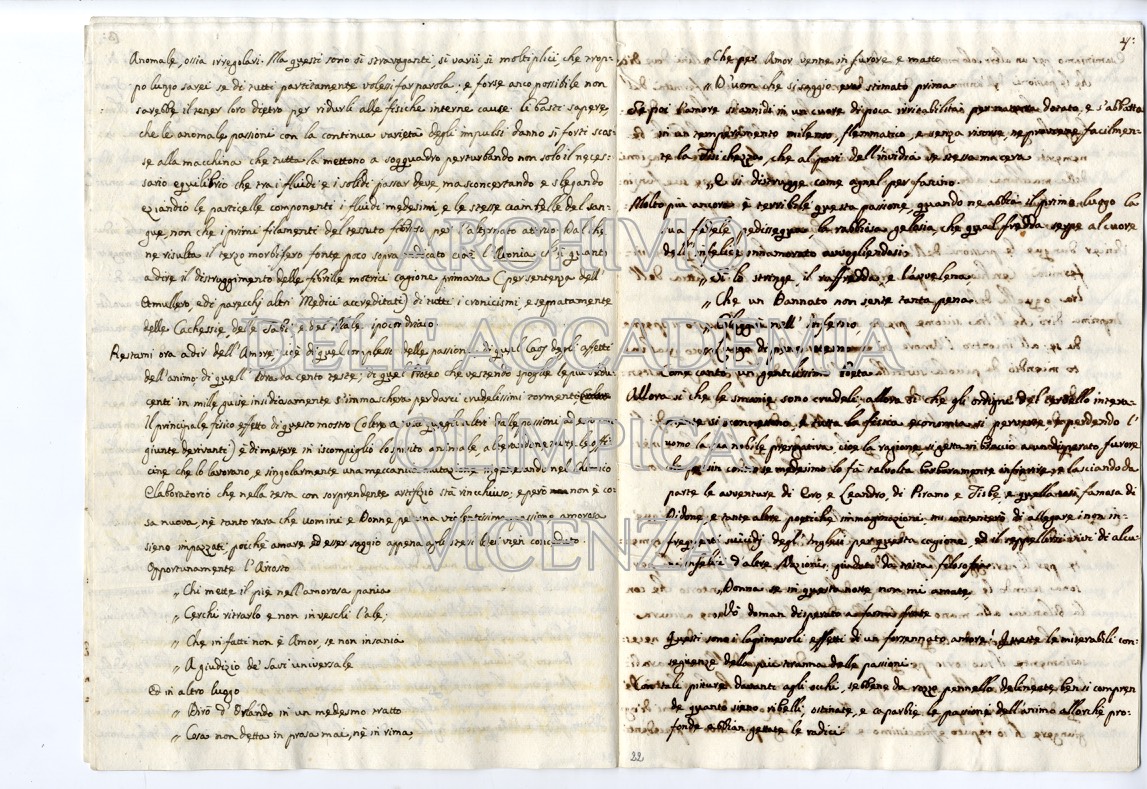 Anomale, ossia irregolari. Ma questi sono sì stravaganti, sì varii, sì moltiplici, che trop-
po lungo sarei se di tutti partitamente volessi far parola; e forse anco possibile non
sarebbe il tener loro dietro per ridurli alle fisiche interne cause. Vi basti sapere,
che le anomale passioni con la continua varietà degli impulsi danno sì forti scos-
se alla macchina che tutta la mettono a soqquadro perturbando non solo il neces-
sario equilibrio che tra i fluidi e i solidi passar deve ma sconcertando e slegando
eziandio le particelle componenti i fluidi medesimi, e le stesse ciambelle del san-
gue, non che i primi filamenti del tessuto fibroso per l'alternato attrito. Dal che
ne risulta il terzo morbifero fonte poco sopra indicato cioè l'
a dire il distruggimento delle fibrille motrici cagione primaria (per sentenza dell'
Etmullero, e di parecchj altri Medici accreditati) di tutti i cronicismi, e segnatamente
delle Cachessie, delle Tabi, e del Male ipocondriaco.
Restami ora a dir dell'Amore, cioè di quel complesso delle passioni, di quel Caos degli affetti
dell'animo, di quell'Idra da cento teste, di quel Proteo che vestendo spoglie le più sedu-
centi in mille guise insidiosamente s'immaschera per darci crudelissimi tormenti.
Il principale fisico effetto di questo mostro (oltre a tutti quegli altri dalle passioni ad esso
giunte derivanti) è di mettere in iscompiglio lo spirito animale, alterandone tutte le offi-
cine che lo lavorano, e singolarmente una meccanica mutazione ingenerando nel chimico
Elaboratorio che nella testa con sorprendente artifizio stà rinchiuso; e però non è co-
sa nuova, nè tanto rara che Uomini e Donne per una violentissima passione amorosa
sieno impazzati; poichè amare ed esser saggio appena agli stessi Dei vien conceduto.
Opportunamente l'Ariosto
„ Chi mette il piè nell'amorosa pania
„ Cerchi ritrarlo e non inveschi l'ale;
„ Che in fatti non è Amor, se non insania
„ A giudizio de' Savi universale
Ed in altro luogo
„ Dirò d'Orlando in un medesmo tratto
„ Cosa non detta in prosa mai, nè in rima,
„ Che per Amor venne in furore e matto
„ D'uom che sì saggio era stimato prima.
Se poi l'amore s'annidi in un cuore di poca irritabilità per natura dotato, e s'abbatta
in un temperamento milenso, flemmatico, e senza risorse, ne proviene facilmen-
te la Tisichezza, che al pari dell'invidia se stessa macera
„ E si distrugge come agnel per fascino.
Molto più ancora è terribile questa passione, quando ne abbia il primo luogo la
sua fedele pedissequa la rabbiosa gelosia, che qual fredda serpe al cuore
dell'infelice innamorato avvogliendosi
„ Sì lo stringe, il raffredda, e l'avvelena
„ Che un Dannato non sente tanta pena
„ Laggiù nell'inferno,
Come cantò un gentilissimo Poeta.
Allora sì che le smanie sono crudeli, allora sì che gli ordigni del cervello intera-
mente si , e tutta la fisica economia si perverte, e perdendo l'
uomo la sua nobile prerogativa, cioè la ragione, si getta in braccio a un disperato furore
che sin contro se medesimo lo fà talvolta barbaramente infierire; e lasciando da
parte le avventure di Ero, e Leandro, di Piramo e Tisbe, e quella sì famosa di
Didone, e tante altre poetiche immaginazioni, mi contenterò di allegare i non in-
frequenti suicidj degl'Inglesi per questa cagione, ed il seppellirsi vivi di alcu-
ni infelici d'altre Nazioni, guidati da trista filosofia.
„ Donna se in questa notte non mi amate
„ Vò doman disperato a farmi frate
Questi sono i lagrimevoli effetti di un forsennato amore! Queste le miserabili con-
seguenze della più tiranna delle passioni.
Con tali pitture davanti agli occhi, sebbene da rozzo pennello delineate, ben si compren
de quanto sieno ribelli, ostinate, e caparbie le passioni dell'animo allorchè pro-
fonde abbian gettate le radici
22
ARCHIVIO
DELL'ACCADEMIA
OLIMPICA
VICENZA